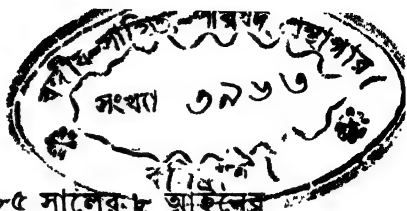 বঙ্গীয়-সাহিত্য-পরিষদ্ গ্রন্থাগার
সংখ্যা ৩৯৬৩
৮৫ সালের ৮ আইনের